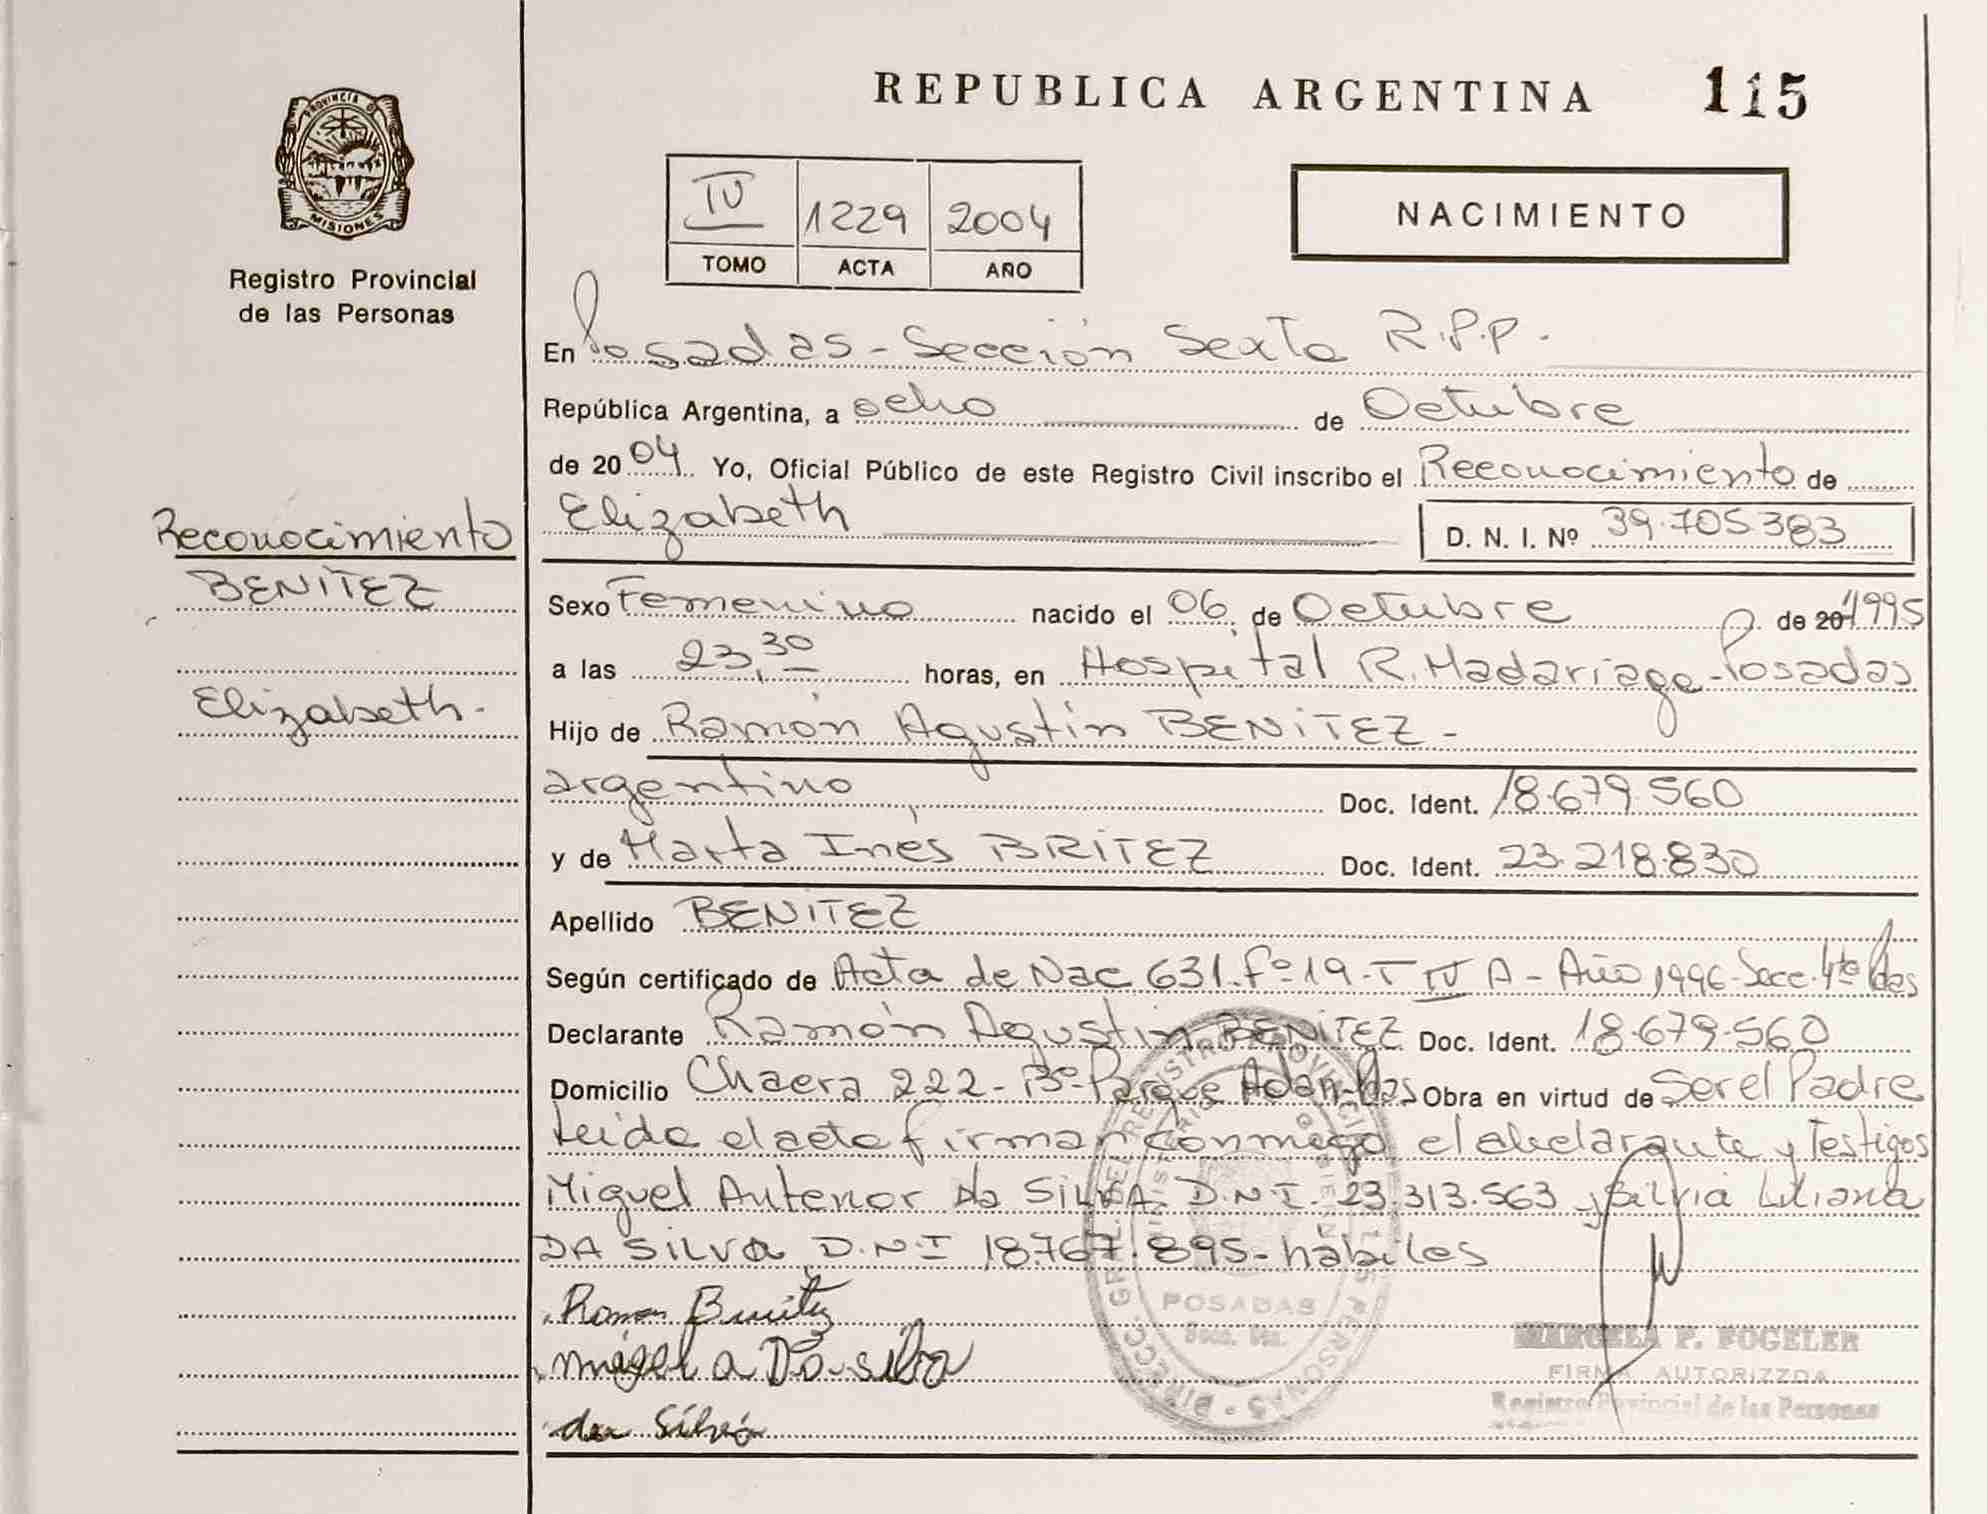 REPUBLICA ARGENTINA 115
PROVINCIA D
MISIONES
Registro Provincial
de las Personas
IV 1229 2004
TOMO ACTA AÑO
NACIMIENTO
En Posadas - Sección Sexta R.P.P.-
República Argentina, a ocho de Octubre
de 2004 Yo, Oficial Público de este Registro Civil inscribo el Reconocimiento de
Elizabeth D. N. I. Nº 39.705.383
Reconocimiento
BENITEZ
Elizabeth.-
Sexo Femenino nacido el 06 de Octubre de 20 1995
a las 23,30 horas, en Hospital R. Madariaga - Posadas
Hijo de Ramón Agustín BENíTEZ -
argentino, Doc. Ident. 18.679.560
y de Marta Inés BRíTEZ Doc. Ident. 23.218.830
Apellido BENITEZ
Según certificado de Acta de Nac. 631. Fº 19 - T IV A - Año 1996 - Secc. 4ta Pdas
Declarante Ramón Agustín BENíTEZ Doc. Ident. 18.679.560
Domicilio Chacra 222 - Bº Parque Adam - Pdas Obra en virtud de Ser el Padre
Leida el acta firman conmigo el declarante y Testigos
Miguel Antenor da SILVA D.N.I. 23.313.563 y Silvia Liliana
DA SILVA D.N.I 18.767.895 - hábiles
Ramon Benitez
miguel a Da silva
da Silva
DIRECC. GRAL. DEL REGISTRO PROVINCIAL DE LAS PERSONAS
POSADAS
Secc. 6ta.
MARCELA F. FOGELER
FIRMA AUTORIZZDA
Registro Provincial de las Personas